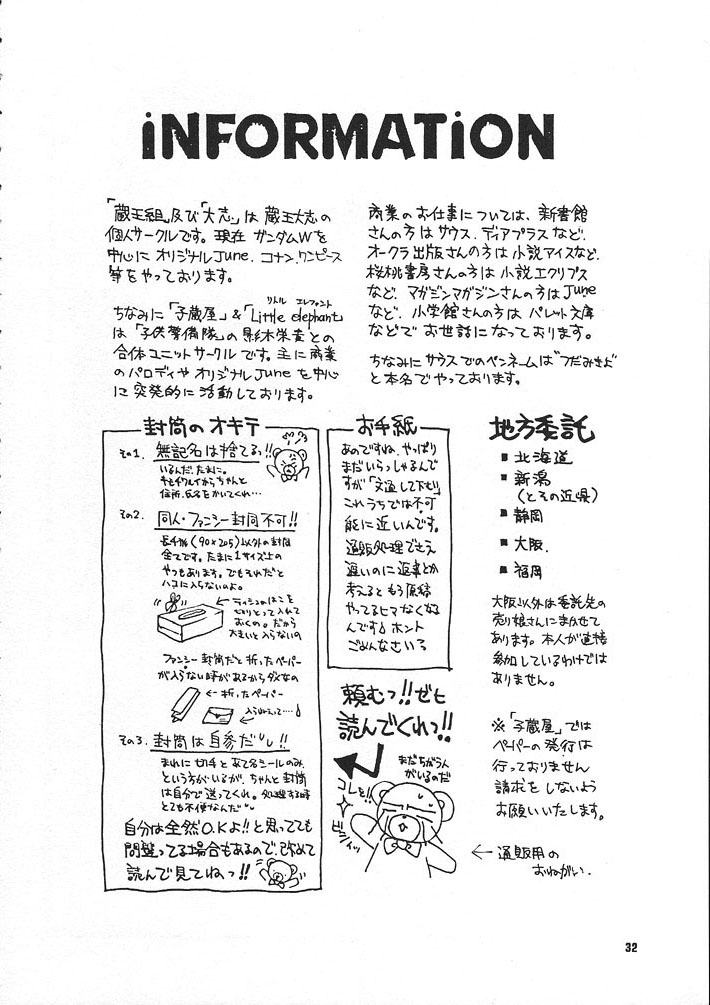 iNFORMATiON
「蔵王組」及び「大志」は 蔵王大志の
個人サークルです。現在 ガンダムWを
中心に オリジナルJune、コナン、ワンピース
等を やっております。
ちなみに「子蔵屋」&「Little elephant」
リトル エレファント
は「子供警備隊」の 影木栄貴との
合体ユニットサークルです。主に商業
のパロディやオリジナルJuneを中心
に 突発的に 活動しております。
商業のお仕事については、新書館
さんの方は サウス、ディアプラス など、
オークラ出版さんの方は 小説アイスなど、
桜桃書房さんの方は 小説エクリプス
など、マガジンマガジンさんの方はJune
など、小学館さんの方は パレット文庫
などで お世話になっております。
ちなみに サウスでのペンネームは"つだみきよ"
と本名で やっております。
封筒のオキテ
その1. 無記名は捨てるっ!!
いるんだ、たまに。
キモチワルイからちゃんと
住所、氏名をかいてくれ…
その2. 同人・ファンシー封筒不可!!
長形 (90×205) 以外の封筒
全てです。たまに1サイズ上の
やつもあります。でもそれだと
ハコに入らないのよ。
←ティッシュのはこを
とって入れて
おくの。だから
大きいと入らないの
ファンシー封筒だと 折ったペーパー
が入らない時があるからダメなの
←折ったペーパー
その3. 封筒は自参だ!!
まれに 切手と あて名シールのみ、
という方がいるが、ちゃんと封筒
は自分で 送ってくれ。処理する時
とても不便なんだ
自分は全然O.Kよ!!と思ってても
間違ってる場合もあるので、改めて
読んで見てねっ!!
お手紙
あのですね、やっぱり
まだいらっしゃるんで
すが「文通して下さい」
これうちでは不可
能に近いんです。
通販処理でさえ
遅いのに返事とか
考えると もう原稿
やってるヒマなくなる
んです♪ ホント
ごめんなさいっ
頼むっ!! ゼヒ
読んでくれっ!!
まだちがう人
がいるのだ
コレを!!
ビシィッ
←通販用の
おねがい.
地方委託
■ 北海道
■ 新潟
(とその近県)
■ 静岡
■ 大阪.
■ 福岡
大阪以外は委託先の
売り娘さんにまかせて
あります。本人が直接
参加しているわけでは
ありません。
※「子蔵屋」では
ペーパーの発行は
行っておりません
請求をしないよう
お願いいたします。
32